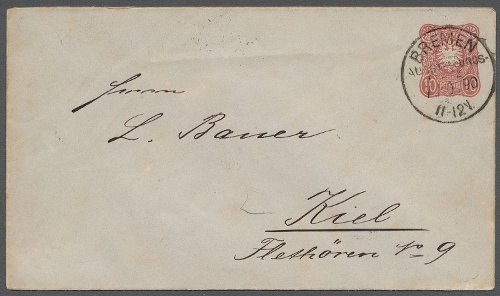 BREMEN
90
11-12V.
10
10
Herrn
L. Bauer
Kiel
Flethören No 9